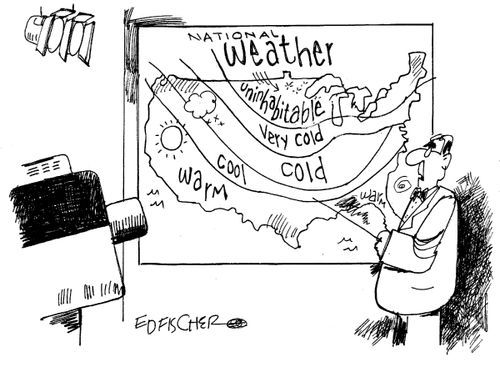 NATIONAL
Weather
uninhabitable
very cold
cold
cool
warm
warm
EDFISCHER